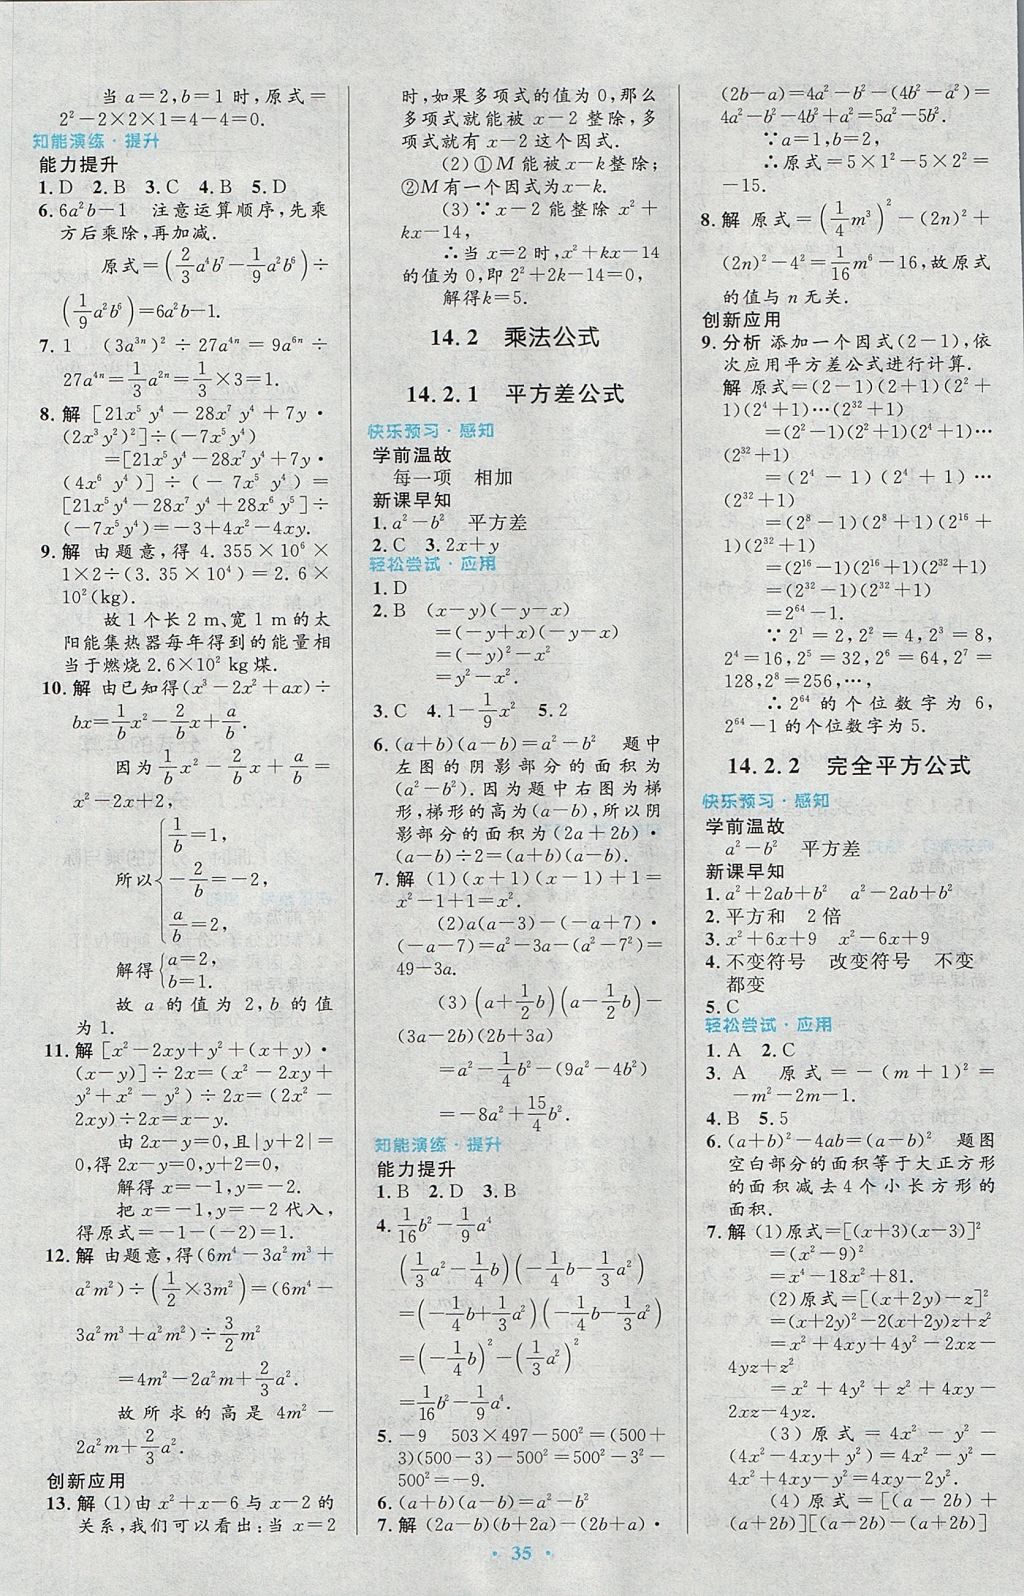 当 a=2,b=1 时,原式=
2²-2×2×1=4-4=0.
知能演练·提升
能力提升
1. D 2. B 3. C 4. B 5. D
6. 6a²b-1 注意运算顺序,先乘
方后乘除,再加减.
原式=(2/3a⁴b⁷-1/9a²b⁶)÷
(1/9a²b⁶)=6a²b-1.
7. 1 (3a³ⁿ)²÷27a⁴ⁿ=9a⁶ⁿ÷
27a⁴ⁿ=1/3a²ⁿ=1/3×3=1.
8. 解 [21x⁵y⁴-28x⁷y⁴+7y·
(2x³y²)²]÷(-7x⁵y⁴)
=[21x⁵y⁴-28x⁷y⁴+7y·
(4x⁶y⁴)]÷(-7x⁵y⁴)=
[21x⁵y⁴-28x⁷y⁴+28x⁶y⁵]÷
(-7x⁵y⁴)=-3+4x²-4xy.
9. 解 由题意,得 4.355×10⁶×
1×2÷(3.35×10⁴)=2.6×
10²(kg).
故 1 个长 2 m、宽 1 m 的太
阳能集热器每年得到的能量相
当于燃烧 2.6×10² kg 煤.
10. 解 由已知得(x³-2x²+ax)÷
bx=1/bx²-2/bx+a/b.
因为1/bx²-2/bx+a/b=
x²-2x+2,
所以{1/b=1, -2/b=-2, a/b=2,
解得{a=2, b=1.
故 a 的值为 2,b 的值
为 1.
11. 解 [x²-2xy+y²+(x+y)·
(x-y)]÷2x=(x²-2xy+
y²+x²-y²)÷2x=(2x²-
2xy)÷2x=x-y.
由 2x-y=0,且|y+2|
=0,得 2x-y=0,y+2=0,
解得 x=-1,y=-2.
把 x=-1,y=-2 代入,
得原式=-1-(-2)=1.
12. 解 由题意,得(6m⁴-3a²m³+
a²m²)÷(1/2×3m²)=(6m⁴-
3a²m³+a²m²)÷3/2m²
=4m²-2a²m+2/3a².
故所求的高是 4m²-
2a²m+2/3a².
创新应用
13. 解 (1)由 x²+x-6 与 x-2 的
关系,我们可以看出:当 x=2
时,如果多项式的值为 0,那么
多项式能被 x-2 整除,多项式
有因式 x-2 这个因式.
(2)①M 能被 x-k 整除;
②M 有一个因式为 x-k.
(3)∵x-2 能整除 x²+
kx-14,
∴当 x=2 时,x²+kx-14
的值为 0,即 2²+2k-14=0,
解得k=5.
14.2 乘法公式
14.2.1 平方差公式
快乐预习·感知
学前温故
每一项 相加
新课早知
1. a²-b² 平方差
2. C 3. 2x+y
轻松尝试·应用
1. D
2. B (x-y)(-y-x)
=(-y+x)(-y-x)
=y²-x².
3. C 4. 1-1/9x² 5. 2
6. (a+b)(a-b)=a²-b² 题中
左图的阴影部分的面积为
(a²-b²).因为题中右图为梯
形,梯形的高为(a-b),所以阴
影部分的面积为(2a+2b)·
(a-b)÷2=(a+b)(a-b).
7. 解 (1)(x+1)(x-1)+1=
x²-1+1=x².
(2)a(a-3)-(-a+7)·
(-a-7)=a²-3a-(a²-7²)=
49-3a.
(3)(a+1/2b)(a-1/2b)-
(3a-2b)(2b+3a)
=a²-1/4b²-(9a²-4b²)
=-8a²+15/4b².
知能演练·提升
能力提升
1. B 2. D 3. B
4. 1/16b²-1/9a⁴
(1/3a²-1/4b)(-1/4b-1/3a²)
=(-1/4b+1/3a²)(-1/4b-1/3a²)
=(-1/4b)²-(1/3a²)²
=1/16b²-1/9a⁴.
5. -9 503×497-500²=(500+
3)(500-3)-500²=500²-3²-
500²=-9.
6. (a+b)(a-b)=a²-b²
7. 解 (2a-b)(b+2a)-(2b+a)·
(2b-a)=4a²-b²-(4b²-a²)=
4a²-b²-4b²+a²=5a²-5b².
∵a=1,b=2,
∴原式=5×1²-5×2²=
-15.
8. 解 原式=(1/4m³)²-(2n)²+
(2n)²-4²=1/16m⁶-16,故原式
的值与 n 无关.
创新应用
9. 分析 添加一个因式(2-1),依
次应用平方差公式进行计算.
解 原式=(2-1)(2+1)(2²+
1)(2⁴+1)…(2³²+1)
=(2²-1)(2²+1)(2⁴+1)…
(2³²+1)
=(2⁴-1)(2⁴+1)…
(2³²+1)
=(2⁸-1)(2⁸+1)(2¹⁶+
1)(2³²+1)
=(2¹⁶-1)(2¹⁶+1)(2³²+1)
=(2³²-1)(2³²+1)
=2⁶⁴-1.
∵2¹=2,2²=4,2³=8,
2⁴=16,2⁵=32,2⁶=64,2⁷=
128,2⁸=256,…,
∴2⁶⁴的个位数字为 6,
2⁶⁴-1 的个位数字为 5.
14.2.2 完全平方公式
快乐预习·感知
学前温故
a²-b² 平方差
新课早知
1. a²+2ab+b² a²-2ab+b²
2. 平方和 2 倍
3. x²+6x+9 x²-6x+9
4. 不变符号 改变符号 不变
都变
5. C
轻松尝试·应用
1. A 2. C
3. A 原式=-(m+1)²=
-m²-2m-1.
4. B 5. 5
6. (a+b)²-4ab=(a-b)² 题图
空白部分的面积等于大正方形
的面积减去 4 个小长方形的
面积.
7. 解 (1)原式=[(x+3)(x-3)]²
=(x²-9)²
=x⁴-18x²+81.
(2)原式=[(x+2y)-z]²
=(x+2y)²-2(x+2y)z+z²
=x²+4xy+4y²-2xz-
4yz+z²
=x²+4y²+z²+4xy-
2xz-4yz.
(3)原式=4x²-y²-
(4x²-4xy+y²)=4x²-y²-
4x²+4xy-y²=4xy-2y².
(4)原式=[(a-2b)+
(a+2b)][(a-2b)-(a+2b)]
·35·